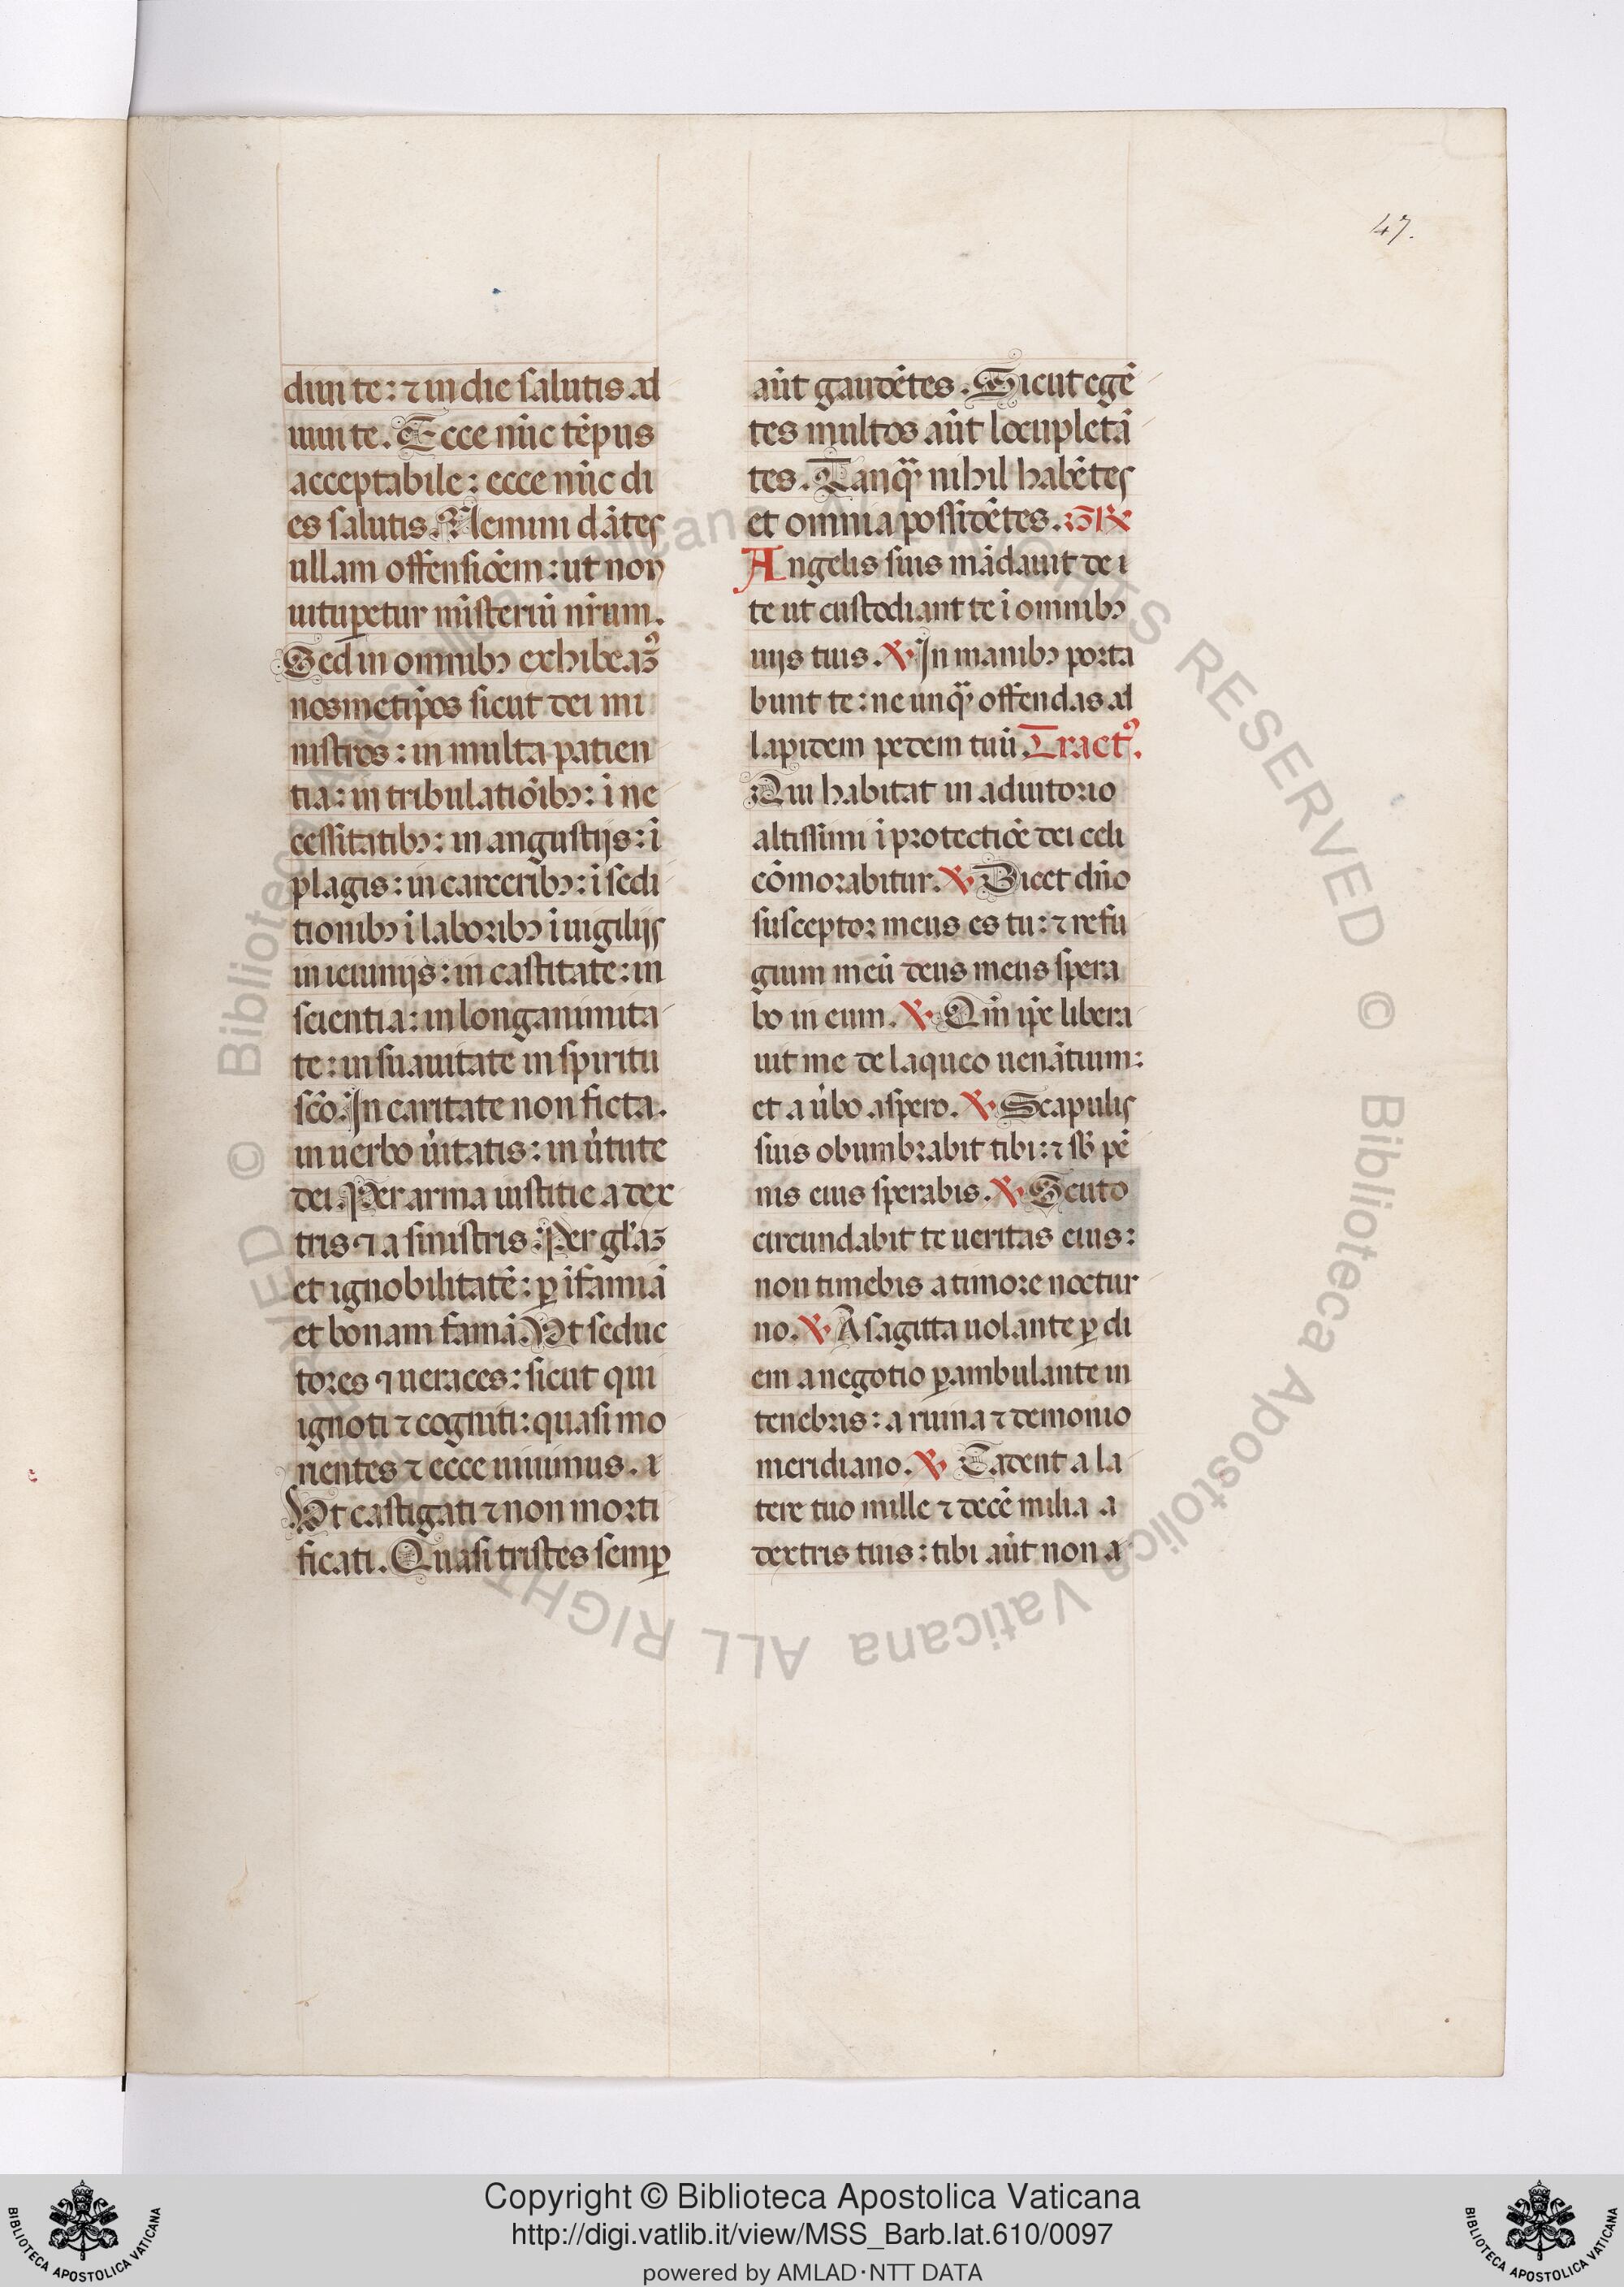 47.
diui te: ⁊ in die salutis ad
iuui te. Ecce nūc tēpus
acceptabile: ecce nūc di
es salutis. Nemini dātes
ullam offensiōem: ut non
uitupet̄ur mīsteriū nr̄um.
Sed in omnibꝫ exhibeaꝫꝰ
nosmetip̄os sicut dei mi
nistros: in multa patien
tia: in tribulatiōibꝫ: ī ne
cessitatibꝫ: in angustijs: ī
plagis: in carceribꝫ: ī sedi
tionibꝫ ī laboribꝫ ī uigilijs
in ieiunijs: in castitate: in
scientia: in longanimita
te: in suauitate in spiritu
sc̄o. In caritate non ficta.
in uerbo ūitatis: in ūtute
dei. Per arma iustitie a dex
tris ⁊ a sinistris. Per gl̄aꝫ
et ignobilitatē: ꝑ īfamiā
et bonam famā. Vt seduc
tores ⁊ ueraces: sicut qui
ignoti ⁊ cogniti: quasi mo
rientes ⁊ ecce uiuimus.
Vt castigati ⁊ non morti
ficati. Quasi tristes semꝑ
aūt gaudētes. Sicut egē
tes multos aūt locupletā
tes. Tanq̄ nihil habētes
et omnia possidētes. GR̄
Angelis suis mādauit de
te ut custodiant te ī omnibꝫ
uijs tuis. ℣ In manibꝫ porta
bunt te: ne unq̄ offendas ad
lapidem pedem tuū. Tractꝰ.
Qui habitat in adiutorio
altissimi ī protectiōe dei celi
cōmorabitur. ℣ Dicet dn̄o
susceptor meus es tu: ⁊ refu
gium meū deus meus spera
bo in eum. ℣ Qm̄ ip̄e libera
uit me de laqueo uenātium:
et a ūbo aspero. ℣ Scapulis
suis obumbrabit tibi: ⁊ sb̄ pē
nis eius sperabis. ℣ Scuto
circundabit te ueritas eius:
non timebis a timore noctur
no. ℣ A sagitta uolante ꝑ di
em a negotio ꝑambulante in
tenebris: a ruina ⁊ demonio
meridiano. ℣ Cadent a la
tere tuo mille ⁊ decē milia a
dextris tuis: tibi aūt non a
© Biblioteca Apostolica Vaticana ALL RIGHTS RESERVED
© Biblioteca Apostolica Vaticana ALL RIGHTS RESERVED
BIBLIOTECA APOSTOLICA VATICANA
Copyright © Biblioteca Apostolica Vaticana
http://digi.vatlib.it/view/MSS_Barb.lat.610/0097
powered by AMLAD·NTT DATA
BIBLIOTECA APOSTOLICA VATICANA